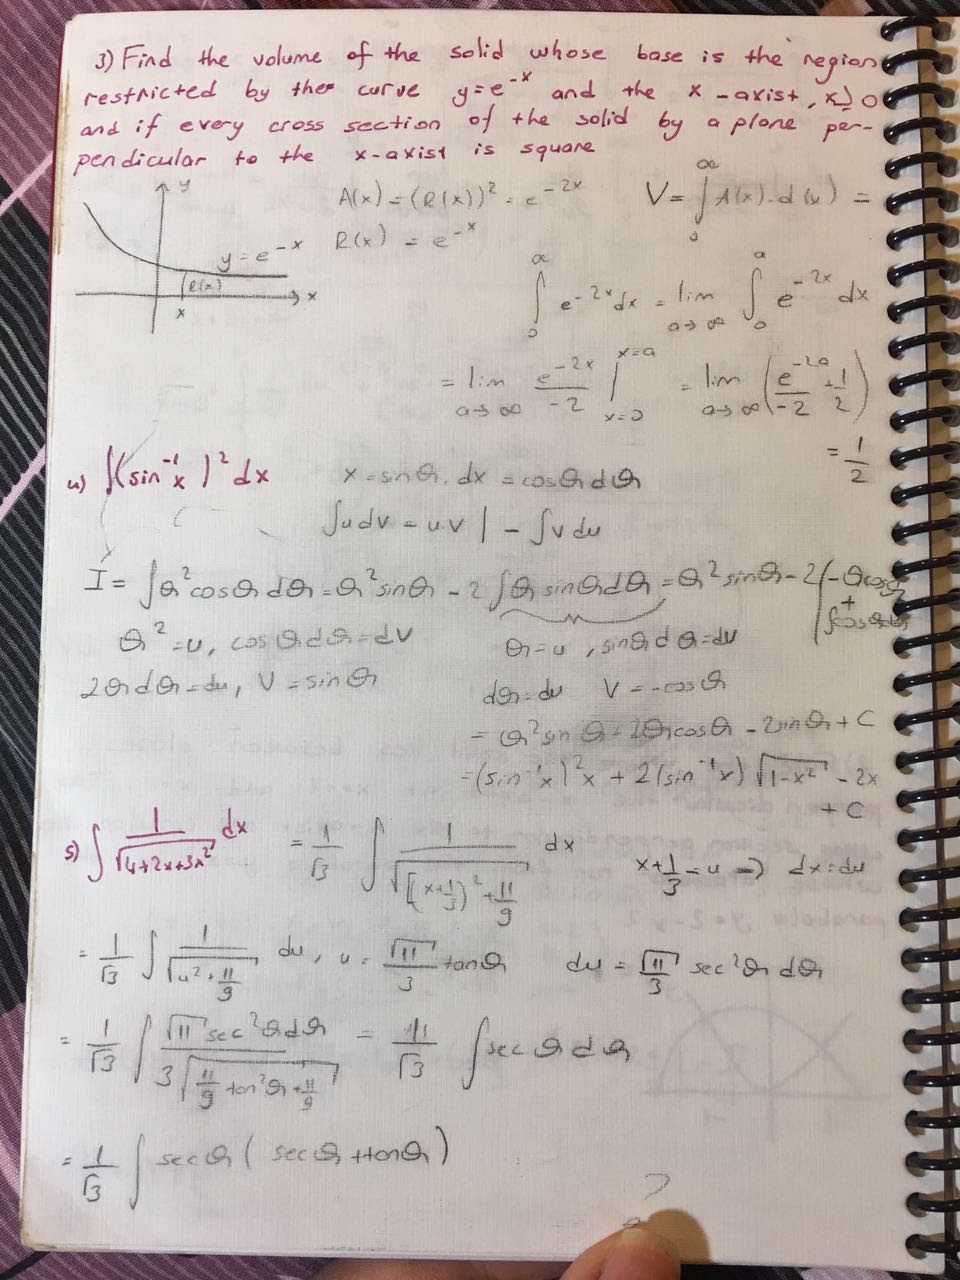 3) Find the volume of the solid whose base is the region
restricted by the curve y=e^-x and the x-axist, x≥0
and if every cross section of the solid by a plane per-
pendicular to the x-axist is square
y
A(x) = (R(x))² = e^-2x V = ∫_0^∞ A(x).d(x) =
R(x) = e^-x
y = e^-x
R(x)
x
x
∫_0^∞ e^-2x dx = lim_{a→∞} ∫_0^a e^-2x dx
= lim_{a→∞} e^-2x/-2 |_{x=0}^{x=a} = lim_{a→∞} (e^-2a/-2 + 1/2)
= 1/2
4) ∫(sin^-1 x)² dx x = sinθ, dx = cosθ dθ
∫u dv = u.v | - ∫v du
I = ∫θ² cosθ dθ = θ² sinθ - 2 ∫θ sinθ dθ = θ² sinθ - 2(-θ cosθ + ∫cosθ dθ
θ² = u, cosθ dθ = dv θ = u, sinθ dθ = dv
2θ dθ = du, V = sinθ dθ = du V = -cosθ
= θ² sinθ + 2θ cosθ - 2sinθ + C
= (sin^-1 x)² x + 2(sin^-1 x) √(1-x²) - 2x
+ C
5) ∫ 1/√(4+2x+3x²) dx = 1/√3 ∫ 1/√([x+1/3)² + 11/9) dx x+1/3 = u ⇒ dx = du
= 1/√3 ∫ 1/√(u² + 11/9) du, u = √11/3 tanθ du = √11/3 sec²θ dθ
= 1/√3 ∫ √11 sec²θ dθ / 3√(11/9 tan²θ + 11/9) = 1/√3 ∫ secθ dθ
= 1/√3 ∫ secθ ( secθ + tanθ)